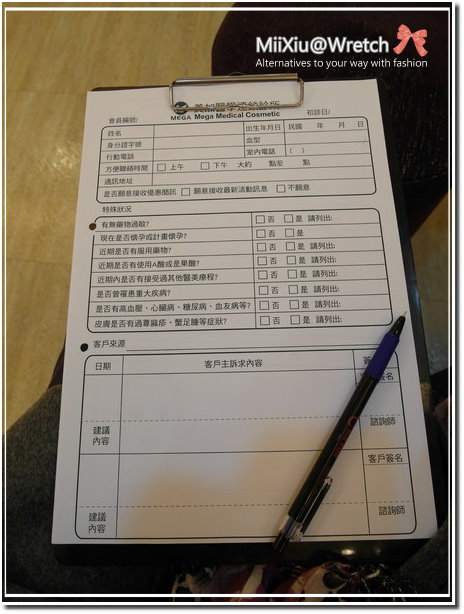 MiiXiu@Wretch
Alternatives to your way with fashion
MEGA Mega Medical Cosmetic
會員編號/ 初診日/
姓名 出生年月日 民國 年 月 日
身分證字號 血型
行動電話 室內電話 ( )
方便聯絡時間 □上午 □下午 大約 點至 點
通訊地址
是否願意接收優惠簡訊 □願意接收最新活動訊息 □不願意
特殊狀況
有無藥物過敏? □否 □是 請列出:
現在是否懷孕或計畫懷孕? □否 □是
近期是否有服用藥物? □否 □是 請列出:
近期是否有使用A酸或是果酸? □否 □是 請列出:
近期內是否有接受過其他醫美療程? □否 □是 請列出:
是否曾罹患重大疾病? □否 □是 請列出:
是否有高血壓、心臟病、糖尿病、血友病等? □否 □是 請列出:
皮膚是否有過蕁麻疹、蟹足腫等症狀? □否 □是 請列出:
客戶來源
日期 客戶主訴求內容 簽
簽名
建議 諮詢師
內容
客戶簽名
建議 諮詢師
內容